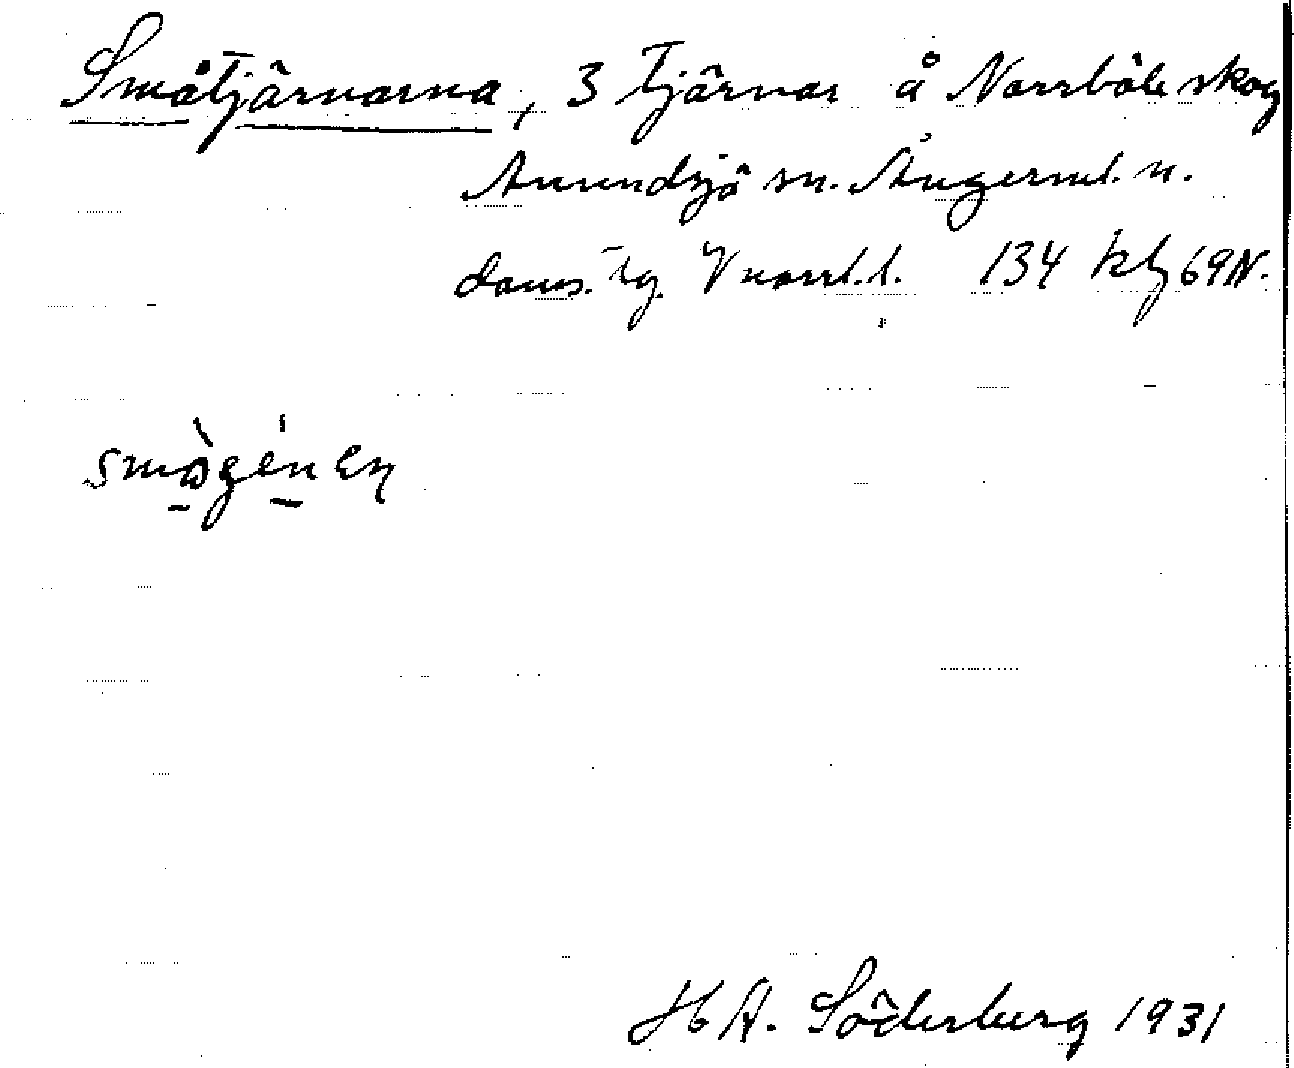 Småtjärnarna, 3 tjärnar å Norrböle skog
Anundsjö sn. Ångerml. n.
doms. tg. Vnorrl. l. 134 kbf 69N.
H A. Söderberg 1931